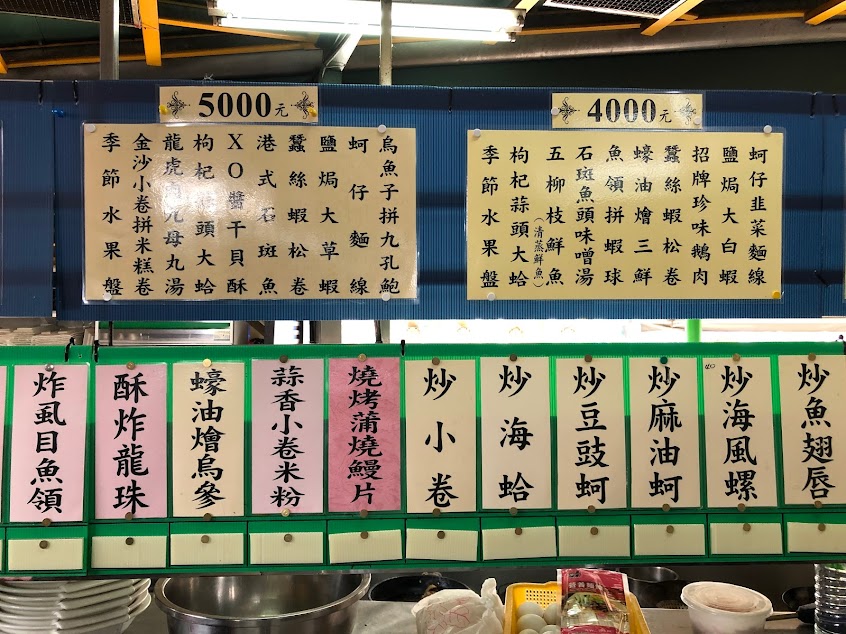 5000元
烏魚子拼九孔鮑
蚵仔麵線
鹽焗大草蝦
蠶絲蝦松卷
港式石斑魚
XO醬干貝酥
枸杞蒜頭大蛤
龍虎母丸湯
金沙小卷拼米糕卷
季節水果盤
4000元
蚵仔韭菜麵線
鹽焗大白蝦
招牌珍味鵝肉
蠶絲蝦松卷
蠔油燴三鮮
魚領拼蝦球
石斑魚頭味噌湯
五柳枝鮮魚
(清蒸鮮魚)
枸杞蒜頭大蛤
季節水果盤
炒魚翅唇
炒海風螺
炒麻油蚵
炒豆豉蚵
炒海蛤
炒小卷
燒烤蒲燒鰻片
蒜香小卷米粉
蠔油燴烏參
酥炸龍珠
炸虱目魚領